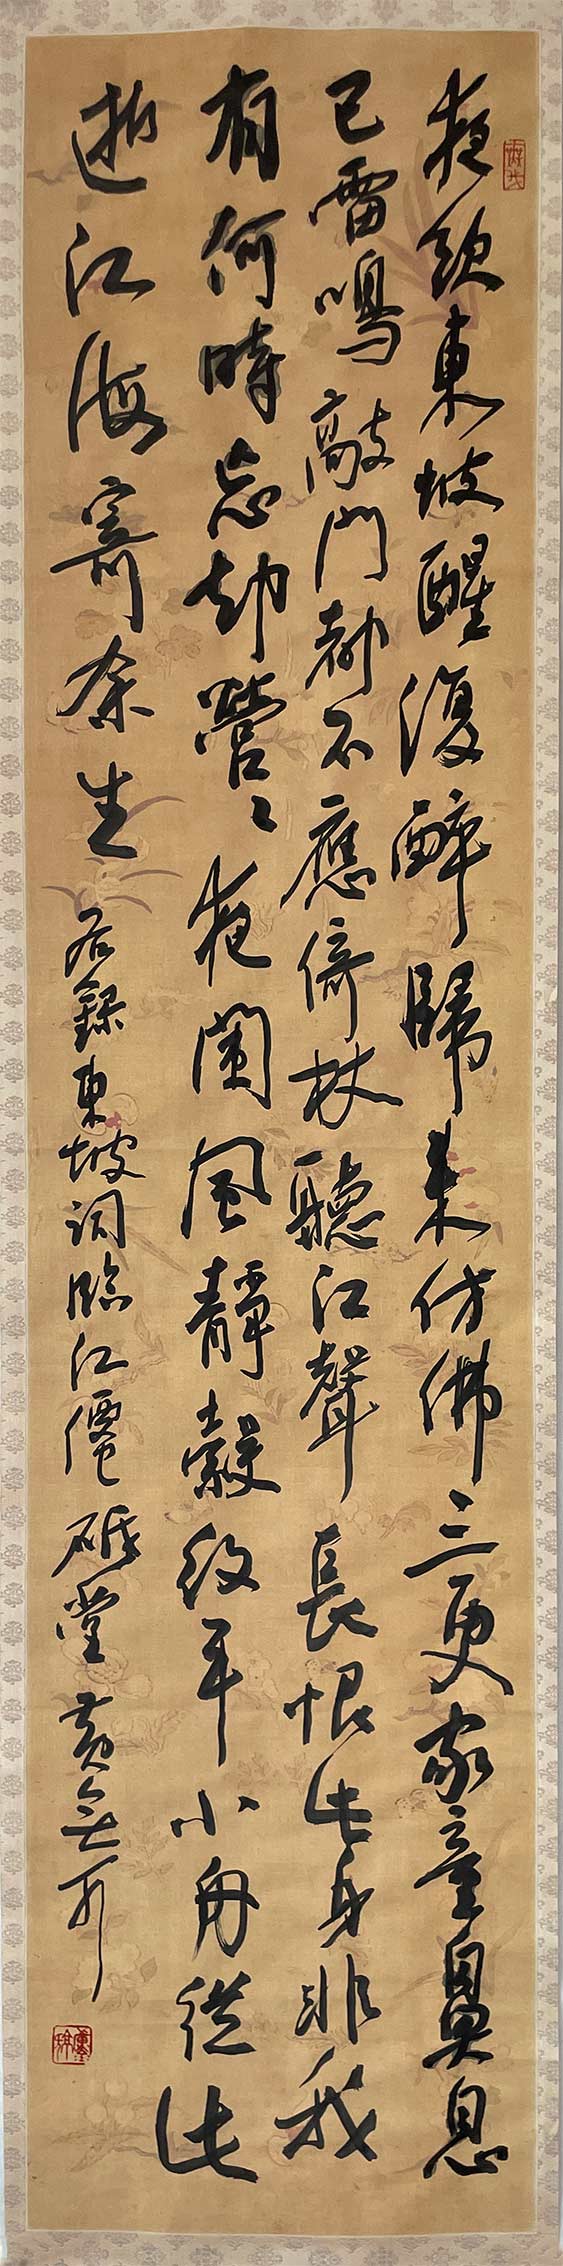 夜飲東坡醒復醉歸來仿佛三更家童鼻息
已雷鳴敲門都不應倚杖聽江聲 長恨此身非我
有何時忘却營〻夜闌風靜縠紋平小舟從此
逝江海寄余生 右錄東坡詞臨江僊 砥堂黃